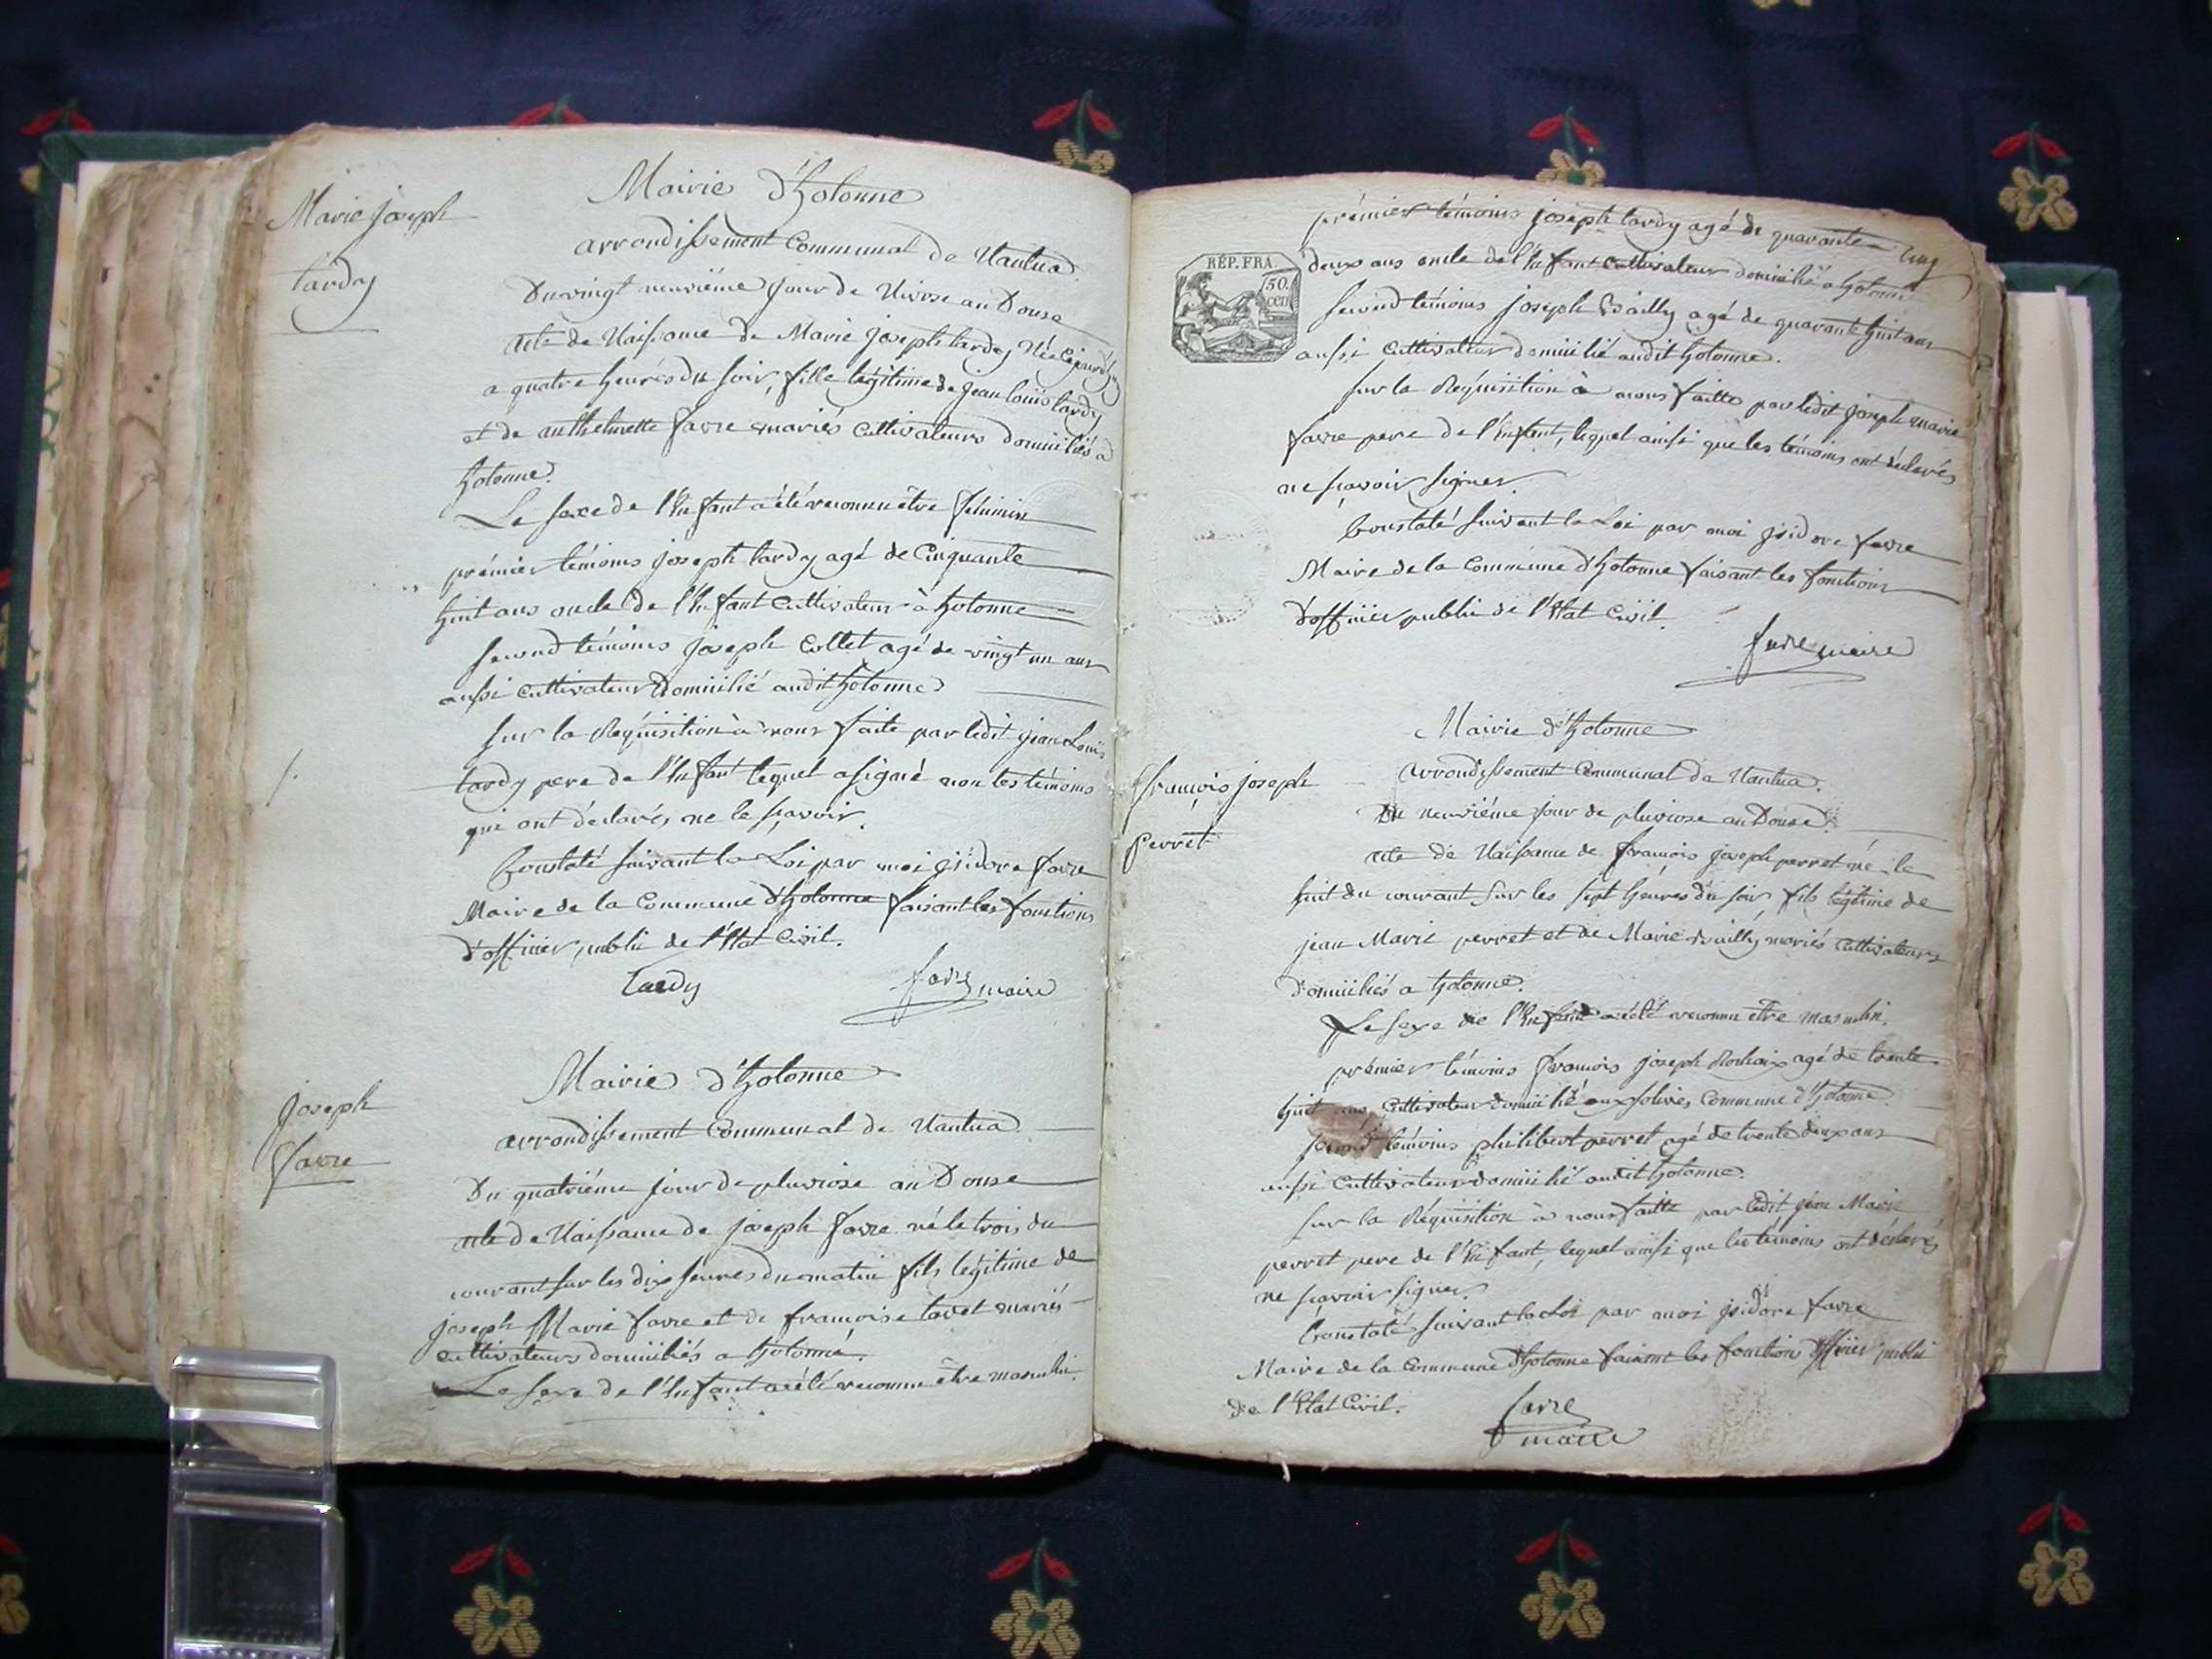 Marie joseph
tardy
Mairie d'hotonne
arrondissement Communal de Nantua
Du vingt neuviéme jour de Nivose an Douse
acte de Naissance de Marie joseph tardy Née
a quatre heures du soir, fille légitime de jean louis tardy
et de anthelmette favre mariés Cultivateurs domiciliés a
hotonne.
Le sexe de l'Enfant a été reconnu être féminin
prémier témoins joseph tardy agé de Cinquante
huit ans oncle de l'Enfant Cultivateur à hotonne
second témoins joseph Collet agé de vingt un ans
aussi Cultivateur Domicilié audit hotonne
sur la Réquisition à nous faite par ledit jean Louis
tardy pere de l'Enfant lequel a signé non les témoins
qui ont déclarés ne le sçavoir.
Constaté suivant la Loi par moi jsidore favre
Maire de la Commune d'hotonne faisant les fonctions
d'officier public de l'Etat Civil.
Tardy favre maire
joseph
favre
Mairie d'hotonne
arrondissement Communal de Nantua
Du quatriéme jour de pluviose an Douse
acte de Naissance de joseph favre né le trois du
courant sur les dix heures du matin fils légitime de
joseph Marie favre et de françoise tavet mariés
cultivateurs domiciliés a hotonne.
Le sexe de l'Enfant a été reconnu être masculin.
prémier témoins joseph tardy agé de quarante
deux ans oncle de l'Enfant Cultivateur domicilié a hotonne
RÉP. FRA.
50.
cen
second témoins joseph Bailly agé de quarante huit ans
aussi Cultivateur domicilié audit hotonne.
sur la Réquisition à nous faitte par ledit joseph marie
favre pere de l'Enfant, lequel ainsi que les témoins ont déclarés
ne sçavoir signer.
Constaté suivant la Loi par moi jsidore favre
Maire de la Commune d'hotonne faisant les fonctions
d'officier public de l'Etat Civil.
favre maire
françois joseph
perret
Mairie d'hotonne
arrondissement Communal de Nantua.
Du neuviéme jour de pluviose an Douse
acte de Naissance de françois joseph perret né le
huit du courant sur les sept heures du soir, fils légitime de
jean Marie perret et de Marie Bailly mariés Cultivateurs
domiciliés a hotonne.
Le sexe de l'Enfant a été reconnu etre masculin.
prémier témoins françois joseph agé de trente
huit ans Cultivateur domicilié aux Commune d'hotonne.
second témoins philibert perret agé de trente deux ans
aussi Cultivateur domicilié audit hotonne.
sur la Réquisition à nous faitte par ledit jean Marie
perret pere de l'Enfant, lequel ainsi que les témoins ont déclarés
ne sçavoir signer.
Constaté suivant la Loi par moi jsidore favre
Maire de la Commune d'hotonne faisant les fonction d'officier public
de l'Etat Civil.
favre
maire